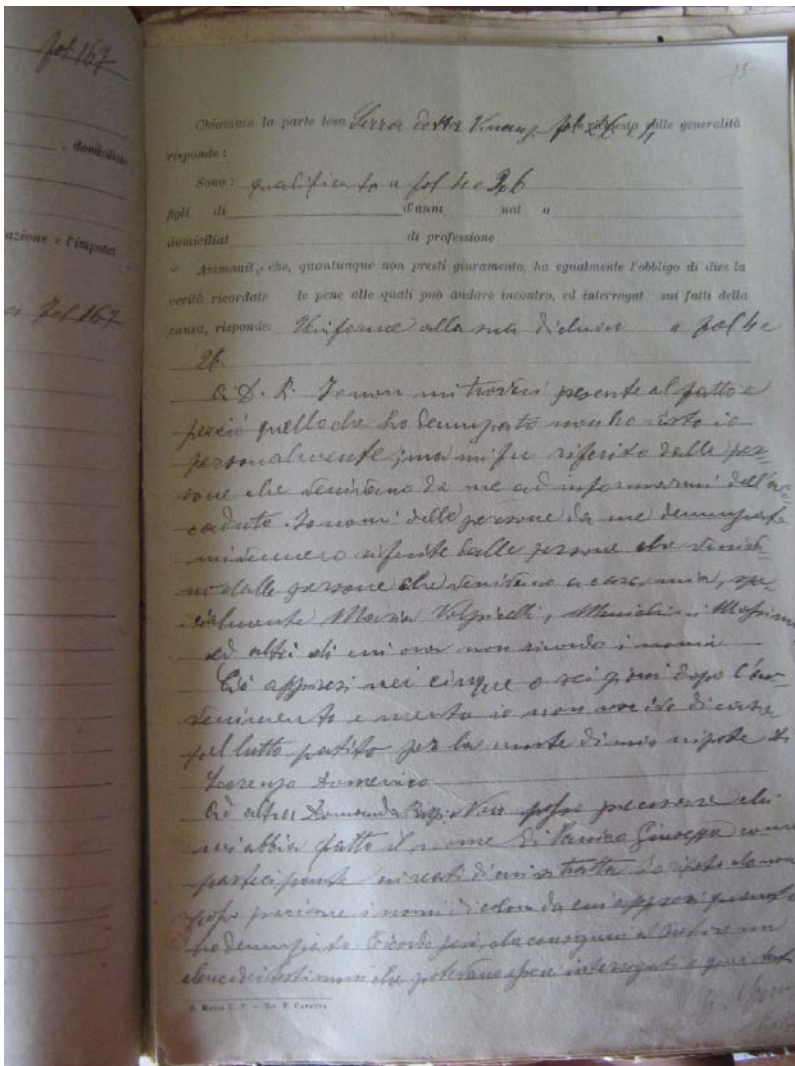 fol 167
, domiciliato
azione e l'imputat
fol. 167
15
Chiamata la parte lesa Serra dott. Vincenz fol richiesta sulle generalità
risponde:
Sono: qualificato a fol 4 e 26
figli di d'anni nat a
domiciliat di professione
Ammonit, che, quantunque non presti giuramento, ha egualmente l'obbligo di dire la
verità ricordate le pene alle quali può andare incontro, ed interrogat sui fatti della
causa, risponde: Uniforme alla sua dichiar a fol 4 e
26.
A D. R. Io non mi trovai presente al fatto e
perciò quello che ho denunziato non ho visto io
personalmente; ma mi fu riferito dalle per-
sone che venivano da me ad informarmi dell'ac-
caduto. I nomi delle persone da me denunziate
mi vennero riferite dalle persone che veniva-
no dalle persone che venivano a casa mia, spe-
cialmente Maria Volpicelli, Menichini Massimo
ed altri di cui ora non ricordo i nomi.
Ciò appresi nei cinque o sei giorni dopo l'av-
venimento e mentre io non uscivo di casa
pel lutto patito per la morte di mio nipote di
Lorenzo Domenico
Ad altra Domanda Risp. Non posso precisare chi
mi abbia fatto il nome di Giuseppe come
partecipante ai reati di cui si tratta. Io ripeto che non
posso precisare i nomi di coloro da cui appresi quanto
ho denunziato. Ricordo però, che consegnai al Pretore un
elenco di testimoni che potevano essere interrogati e